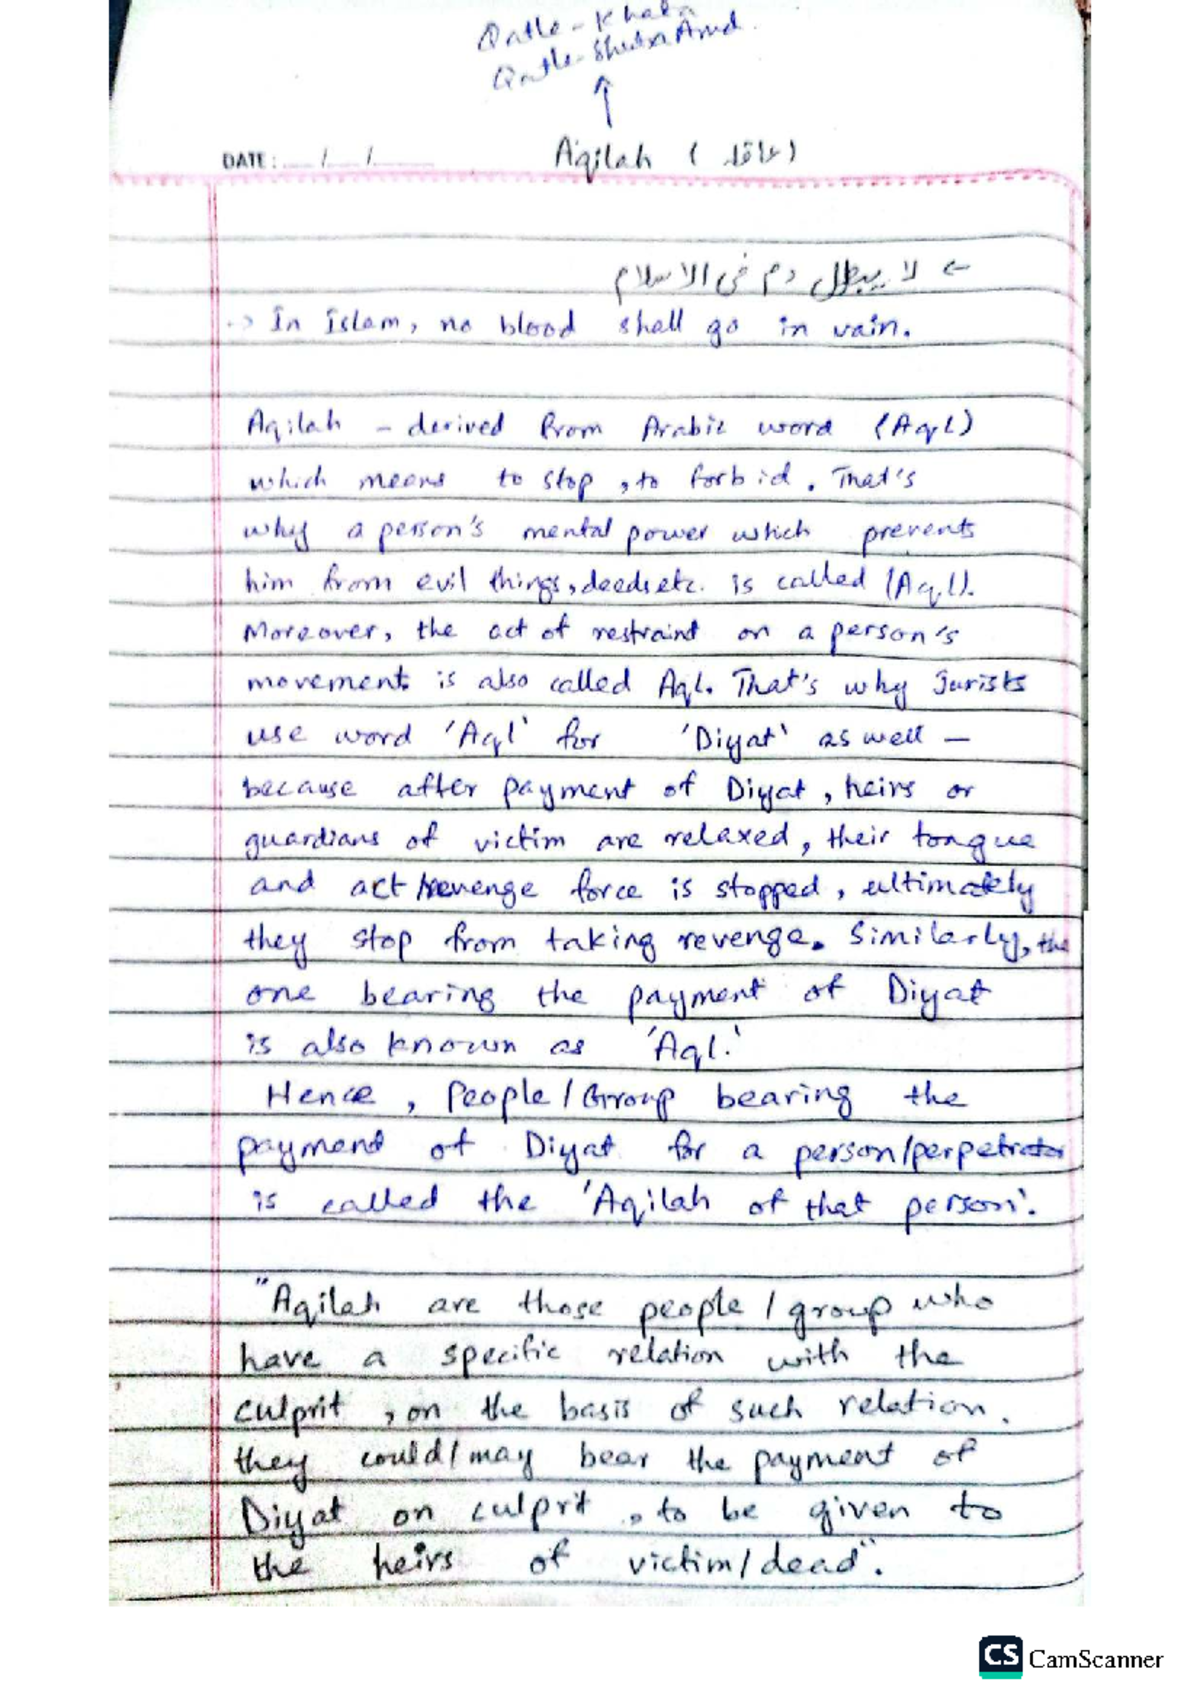 Qatle-Khata
Qatle-Shuba Amd.
DATE: / /
Aqilah (عاقلہ)
← لا يبطل دم فى الاسلام
In Islam, no blood shall go in vain.
Aqilah - derived from Arabic word (Aql)
which means to stop, to forbid. That's
why a person's mental power which prevents
him from evil things, deeds etc. is called (Aql).
Moreover, the act of restraint on a person's
movement is also called Aql. That's why Jurists
use word 'Aql' for 'Diyat' as well –
because after payment of Diyat, heirs or
guardians of victim are relaxed, their tongue
and act/revenge force is stopped, ultimately
they stop from taking revenge. Similarly, the
one bearing the payment of Diyat
is also known as 'Aql.'
Hence, People/Group bearing the
payment of Diyat for a person/perpetrator
is called the 'Aqilah of that person'.
"Aqilah are those people/group who
have a specific relation with the
culprit, on the basis of such relation.
they could/may bear the payment of
Diyat on culprit, to be given to
the heirs of victim/dead".
CS CamScanner